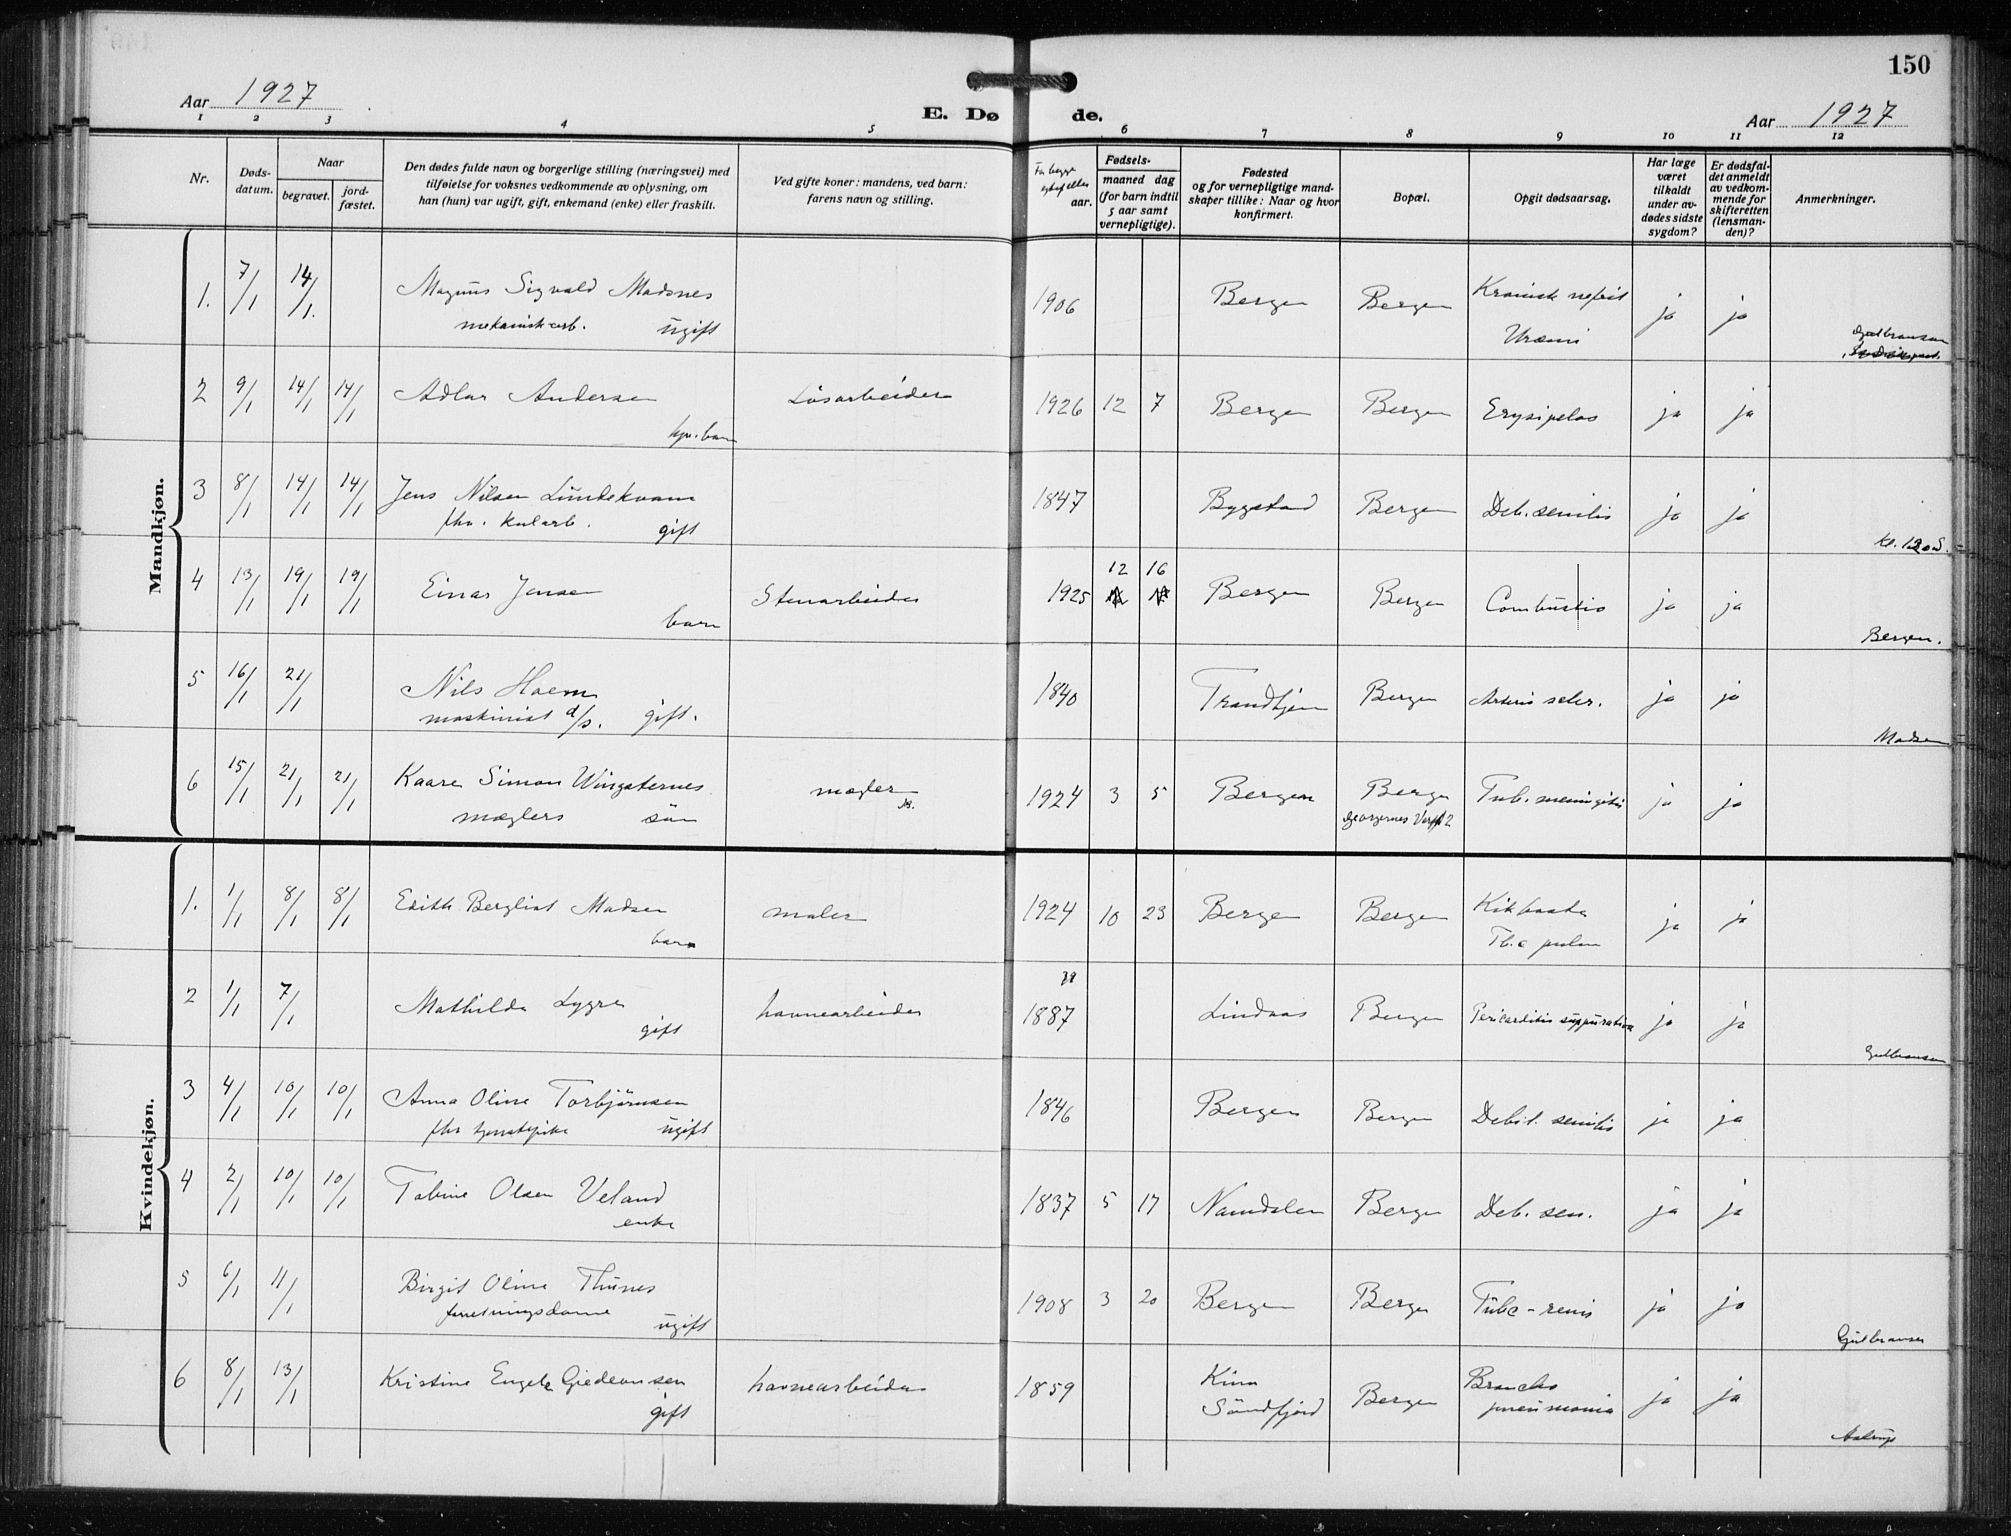 150
Aar 1927
E. Døde.
Aar 1927
1 2 3 4 5 6 7 8 9 10 11 12
Nr.
Døds-datum.
Naar
begravet.
jord-fæstet.
Den dødes fulde navn og borgerlige stilling (næringsvei) med
tilføielse for voksnes vedkommende av oplysning, om
han (hun) var ugift, gift, enkemand (enke) eller fraskilt.
Ved gifte koner: mandens, ved barn:
farens navn og stilling.
aar.
Fødsels-
maaned dag
(for barn indtil
5 aar samt
vernepligtige).
Fødested
og for vernepligtige mand-
skaper tillike: Naar og hvor
konfirmert.
Bopæl.
Opgit dødsaarsag.
Har læge
været
tilkaldt
under av-
dødes sidste
sygdom?
Er dødsfal-
det anmeldt
av vedkom-
mende for
skifteretten
(lensman-
den)?
Anmerkninger.
Mandkjøn.
1. 7/1 14/1. Magnus Sigvald Madsnes 1906 Bergen Bergen Kronisk nefrit ja ja
mekanisk arb. ugift Uræmi
Gulbransen
2 9/1 14/1 14/1 Adlar Andersen Løsarbeider 1926 12 7 Bergen Bergen Erysipelas ja ja
barn
3 8/1 14/1 14/1 Jens Nilsen Lundekvam 1847 Bygstad Bergen Deb. senilis ja ja
fhv. kularb. gift
4 13/1 19/1 19/1 Einar Jensen Stenarbeider 1925 12 16 Bergen Bergen Combustio ja ja
barn
Bergen.
5 16/1 21/1 Nils Hoem 1840 Trondhjem Bergen Arterio scler. ja ja
maskinist d/s. gift.
Madsen
6 15/1 21/1 21/1 Kaare Simon Wingaternes mægler 1924 3 5 Bergen Bergen Tub. meningitis ja ja
mæglers søn Georgernes Verft 2
Kvindekjøn.
1. 1/1 8/1 8/1 Edith Bergliot Madsen maler 1924 10 23 Bergen Bergen Kikhoste ja ja
barn Tb.c pulm
2 1/1 7/1 Mathilde Lygre havnearbeider 1887 Lindaas Bergen Pericarditis suppurativa ja ja
gift
Gulbransen
3 4/1 10/1 10/1 Anna Oline Torbjørnsen 1846 Bergen Bergen Debil. senilis ja ja
fhv tjenestepike ugift
4 2/1 10/1 10/1 Tobine Olsen Veland 1837 5 17 Namdalen Bergen Deb. sen. ja ja
enke
5 6/1 11/1 Birgit Oline Thunes 1908 3 20 Bergen Bergen Tubc - renis ja ja
forretningsdame ugift
Gulbransen
6 8/1 13/1 Kristine Engel Giedeonsen havnearbeider 1859 Kinn Bergen Broncho ja ja
gift Søndfjord pneumonia
Aastrup